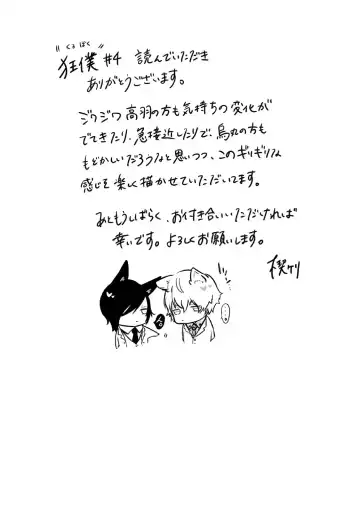 "くるぼく"
狂僕 #4 読んでいただき
ありがとうございます。
ジワジワ高羽の方も気持ちの変化が
でてきたり、急接近したりで、烏丸の方も
もどかしいだろうなと思いつつ、このギリギリな
感じを楽しく描かせていただいてます。
あともうしばらく、お付き合いいただければ
幸いです。よろしくお願いします。
楔ケリ